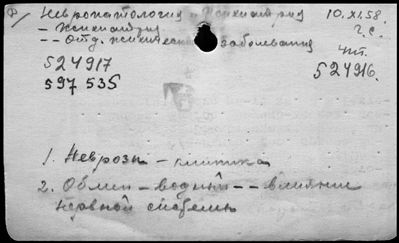 Ф) Невропатология и Психиатрия 10.XI.58.
— Психиатрия г.с.
— — Отд. психические заболевания
чит.
524917 524916.
597535
1. Неврозы — клиника
2. Обмен — водный — — влияние
нервной системы